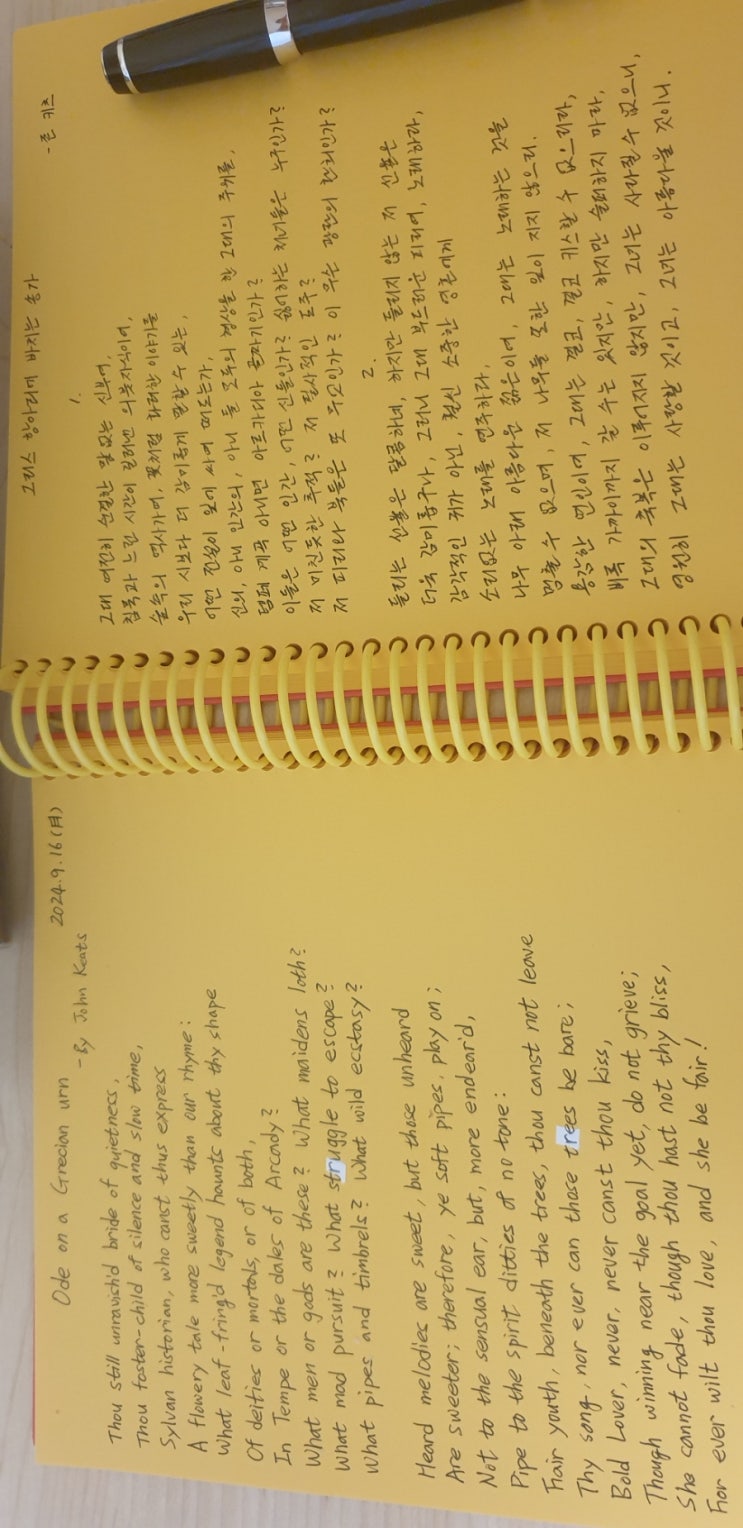 Ode on a Grecian urn 2024.9.16(月)
- By John Keats
Thou still unravish'd bride of quietness,
Thou foster-child of silence and slow time,
Sylvan historian, who canst thus express
A flowery tale more sweetly than our rhyme:
What leaf-fring'd legend haunts about thy shape
Of deities or mortals, or of both,
In Tempe or the dales of Arcady?
What men or gods are these? What maidens loth?
What mad pursuit? What struggle to escape?
What pipes and timbrels? What wild ecstasy?
Heard melodies are sweet, but those unheard
Are sweeter; therefore, ye soft pipes, play on;
Not to the sensual ear, but, more endear'd,
Pipe to the spirit ditties of no tone:
Fair youth, beneath the trees, thou canst not leave
Thy song, nor ever can those trees be bare;
Bold Lover, never, never canst thou kiss,
Though winning near the goal yet, do not grieve;
She cannot fade, though thou hast not thy bliss,
For ever wilt thou love, and she be fair!
그리스 항아리에 바치는 송가
- 존 키츠
1.
그대 여전히 순결한 말없는 신부여,
침묵과 느린 시간이 길러낸 의붓자식이여,
숲속의 역사가여, 꽃처럼 화려한 이야기를
우리 시보다 더 감미롭게 말할 수 있는,
어떤 전설이 잎에 싸여 떠도는가,
신의, 아니 인간의, 아니 둘 모두의 형상을 한 그대의 주위를,
템페 계곡 아니면 아르카디아 골짜기인가?
이들은 어떤 인간, 어떤 신들인가? 싫어하는 처녀들은 누구인가?
저 미친듯한 추적? 저 필사적인 도주?
저 피리와 북들은 또 무엇인가? 이 무슨 광란의 환희인가?
2.
들리는 선율은 달콤하네, 하지만 들리지 않는 저 선율은
더욱 감미롭구나, 그러니 그대 부드러운 피리여, 노래하라,
감각적인 귀가 아닌, 훨씬 소중한 영혼에게
소리없는 노래를 연주하라,
나무 아래 아름다운 젊은이여, 그대는 노래하는 것을
멈출 수 없으며, 저 나무들 또한 잎이 지지 않으리.
용감한 연인이여, 그대는 결코, 결코 키스할 수 없으리라,
비록 가까이까지 갈 수는 있지만, 하지만 슬퍼하지 마라,
그대의 축복은 이루어지지 않지만, 그녀는 사라질 수 없으니,
영원히 그대는 사랑할 것이고, 그녀는 아름다울 것이니.